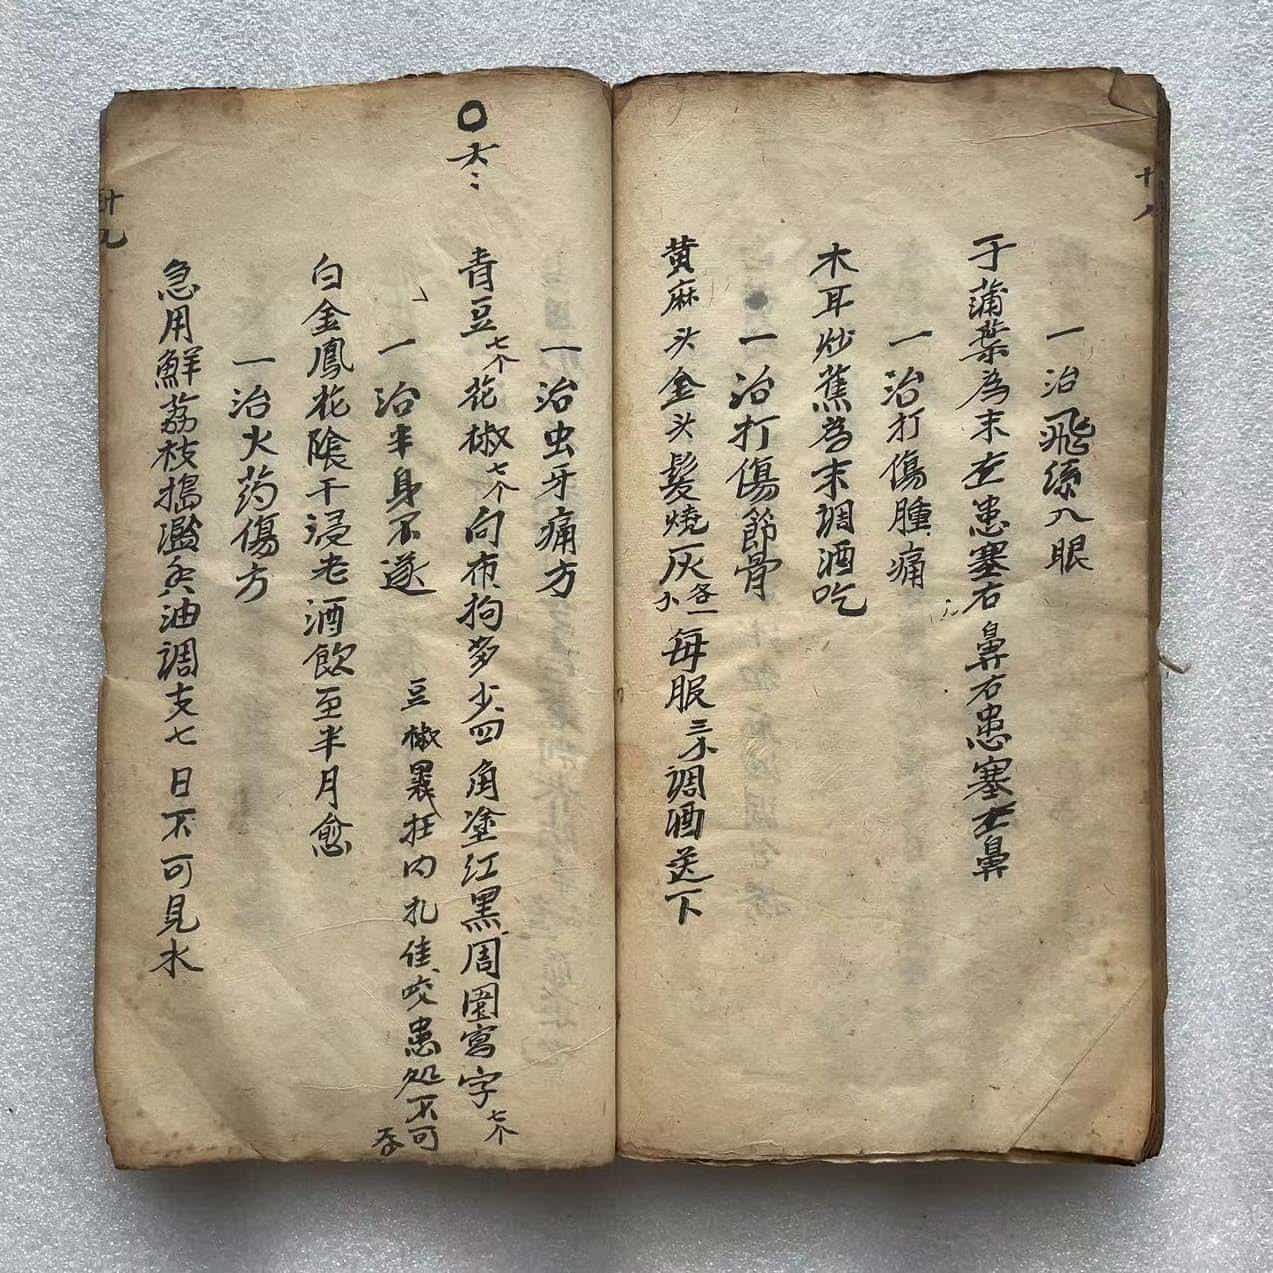 十八
一治飛絲入眼
于蒲葉為末左患塞右鼻右患塞左鼻
一治打傷腫痛
木耳炒蕉為末調酒吃
一治打傷節骨
黄麻头金头髮燒灰各一小每服三小調酒送下
一治虫牙痛方
青豆七个花椒七个向布拘多少四角塗紅黑周圍寫字七个
豆椒裹在内扎佳咬患処不可吞
一治半身不遂
白金鳳花陰干浸老酒飲至半月愈
一治火药傷方
急用鮮荔枝搗濫油調支七日不可見水
十九